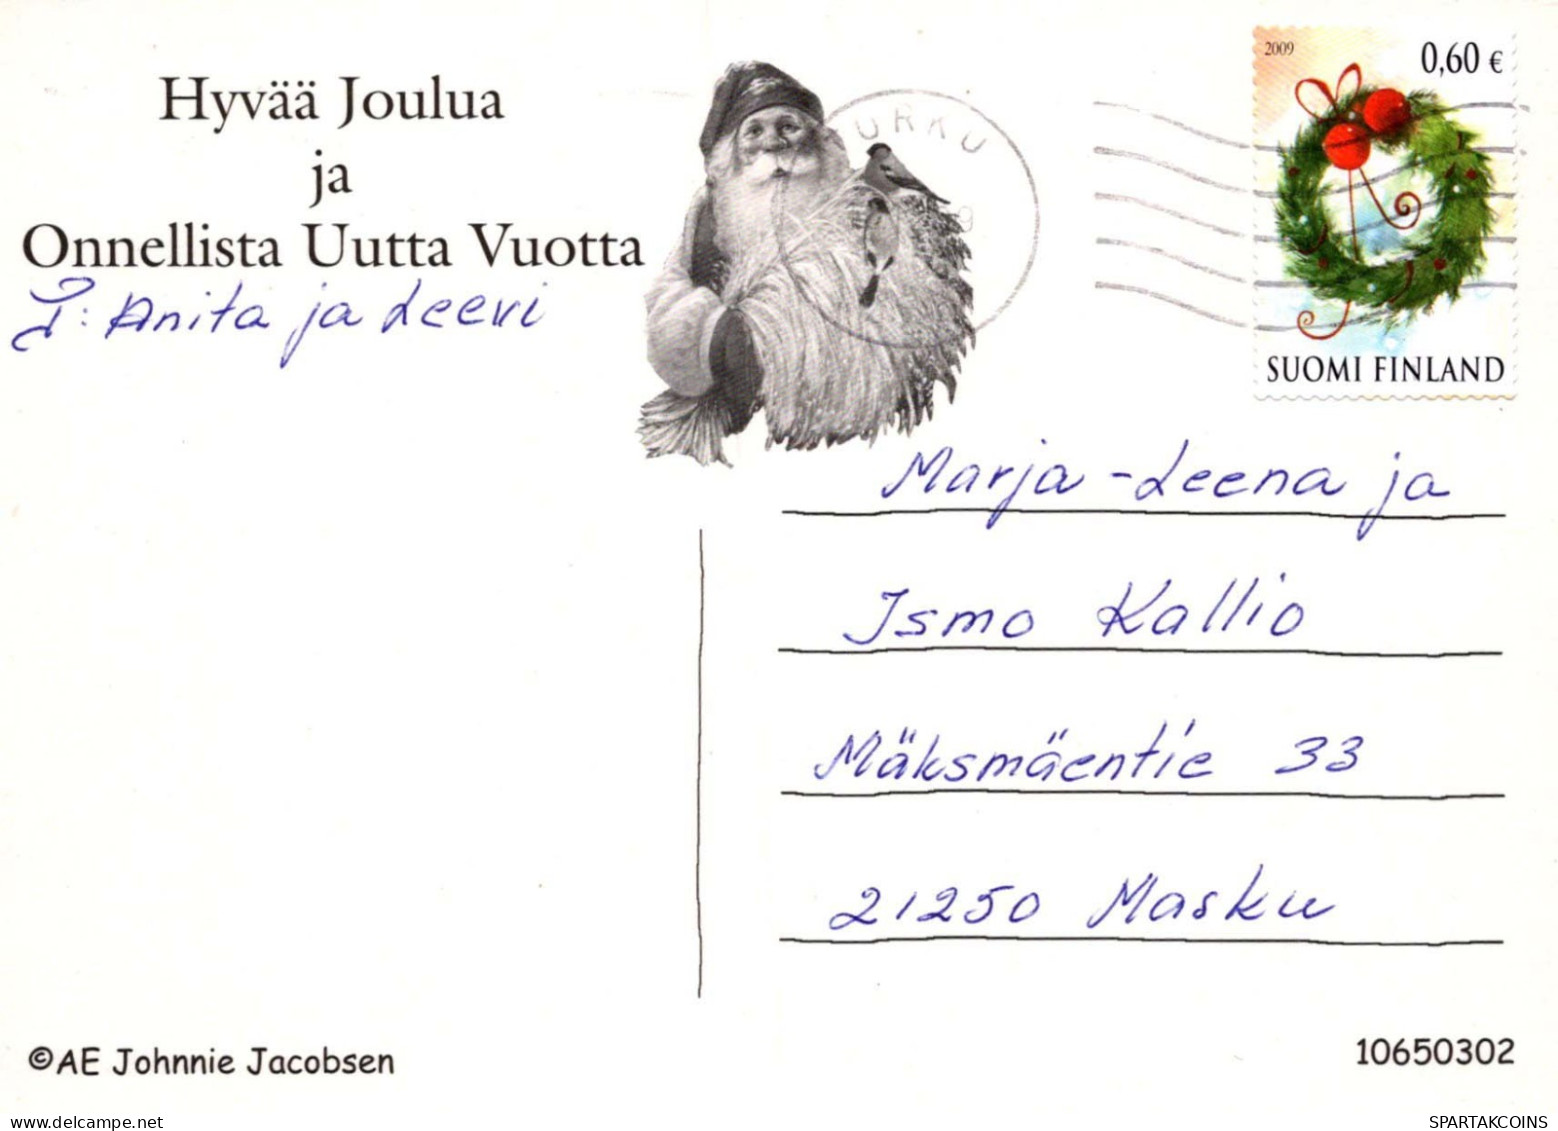 Hyvää Joulua
ja
Onnellista Uutta Vuotta
T: Anita ja Leevi
URKU
9
2009
0,60 €
SUOMI FINLAND
Marja-Leena ja
Ismo Kallio
Mäksmäentie 33
21250 Masku
©AE Johnnie Jacobsen
10650302
delcampe.net
SPARTAKCOINS